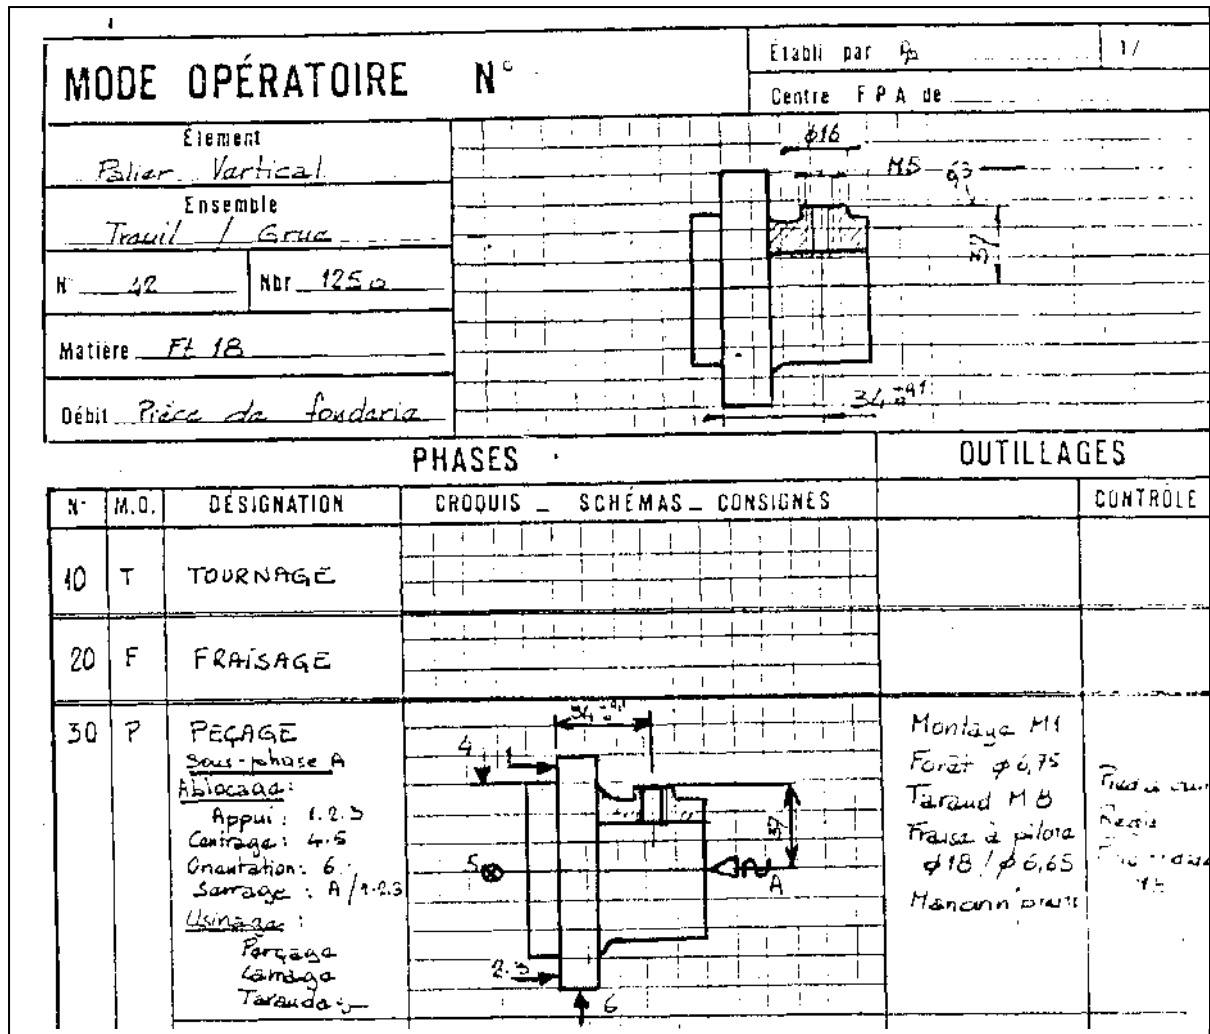 MODE OPÉRATOIRE N°
Établi par
1/
Centre F P A de
Élément
Palier Vertical
Ensemble
Treuil / Grue
N° 42
Nbr 1250
Matière Ft 18
Débit Pièce de fonderie
φ16
M8
37
34 +0,1 0
PHASES
OUTILLAGES
N° M.O. DÉSIGNATION CROQUIS _ SCHÉMAS _ CONSIGNES CONTRÔLE
10 T TOURNAGE
20 F FRAISAGE
30 P PEÇAGE
Sous-phase A
Ablocage:
Appui: 1.2.3
Centrage: 4.5
Orientation: 6
Serrage: A/1.2.3
Usinage:
Perçage
Lamage
Taraudage
34
4
1
37
5
A
2.3
6
Montage M1
Forêt φ6,75
Taraud M8
Fraise à pilote
φ18/φ6,65